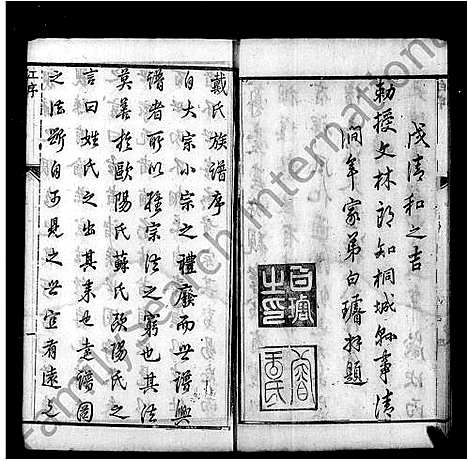 戊清和之吉
勅授文林郎知桐城縣事清
澗年家弟白瓗拜題
戴氏族譜序
自大宗小宗之禮廢而世譜興
譜者所以維宗法之窮也其法
莫善於歐陽氏蘇氏歐陽氏之
言曰姓氏之出其来也遠譜圖
之法斷自可見之世宜有遠之
江序
一
FamilySearch International